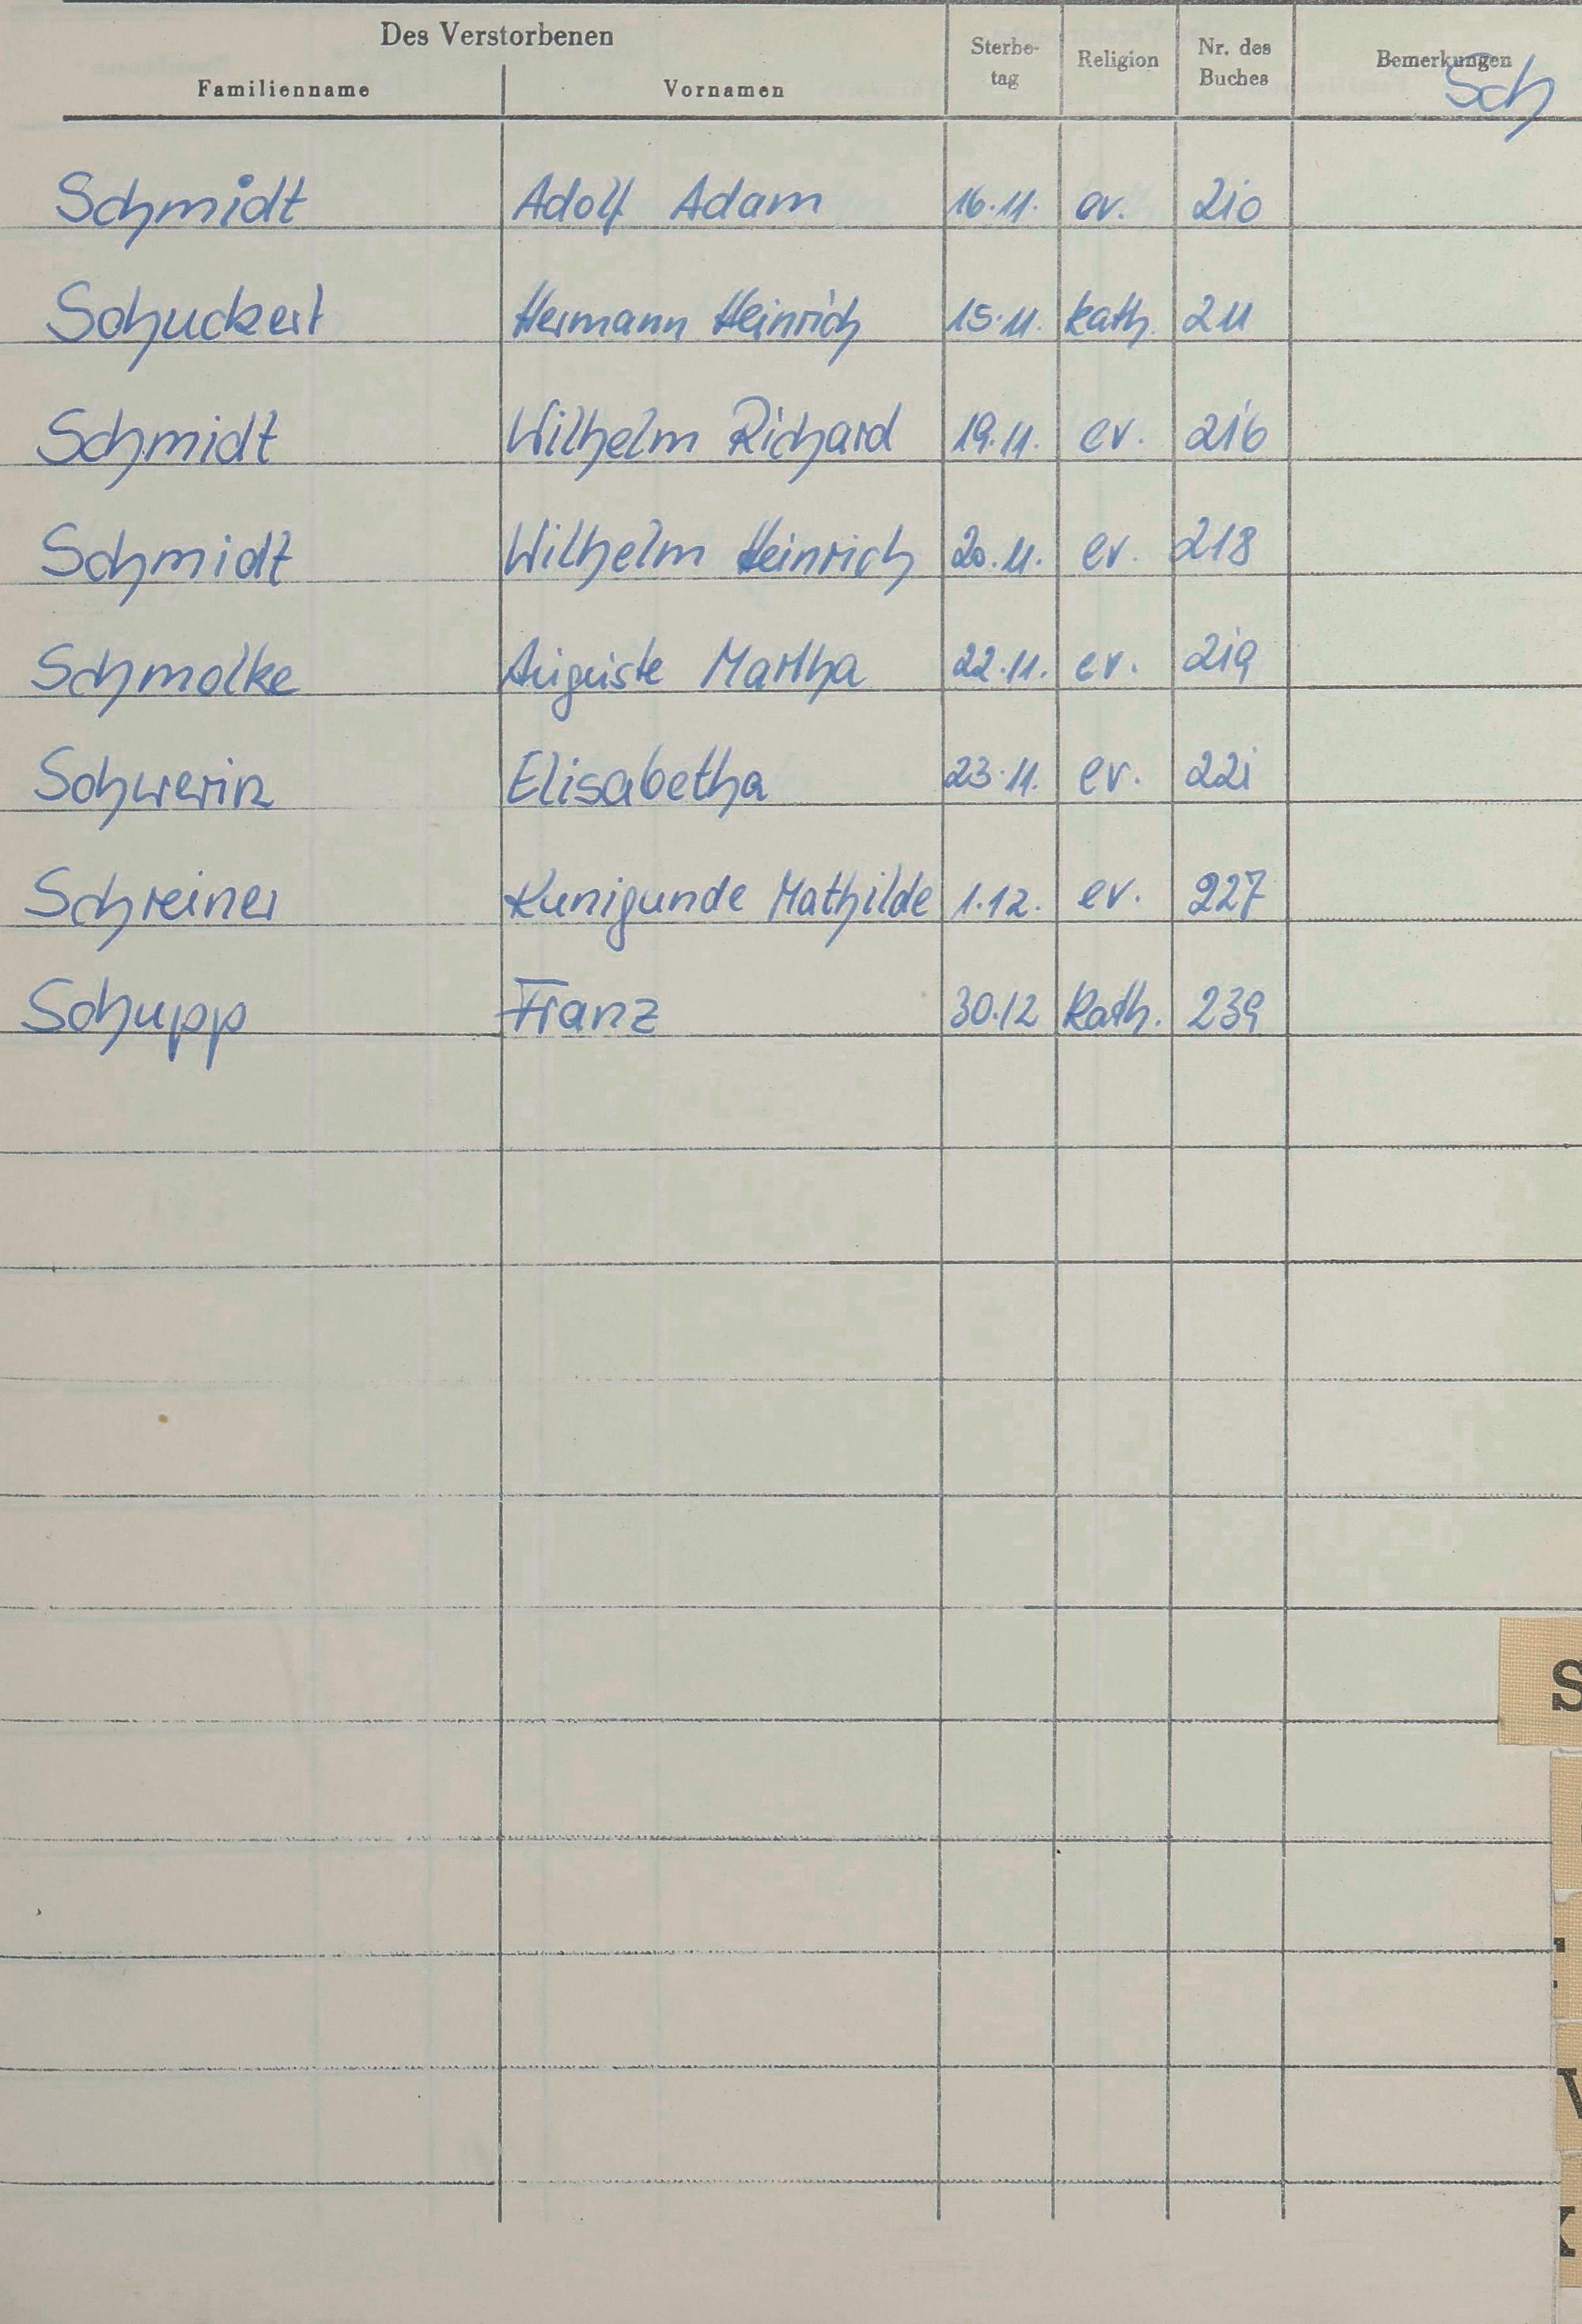 Des Verstorbenen
Familienname Vornamen Sterbe-tag Religion Nr. des Buches Bemerkungen
Sch
Schmidt Adolf Adam 16.11. ev. 210
Schuckert Hermann Heinrich 15.11. kath. 211
Schmidt Wilhelm Richard 19.11. ev. 216
Schmidt Wilhelm Heinrich 20.11. ev. 218
Schmolke Auguste Martha 22.11. ev. 219
Schwerin Elisabetha 23.11. ev. 221
Schreiner Kunigunde Mathilde 1.12. ev. 227
Schupp Franz 30.12 Kath. 239
S